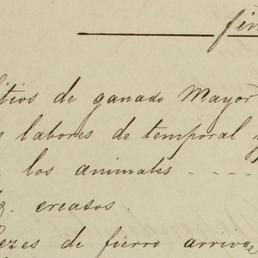 fin
itios de ganado Mayor
s labores de temporal y
los animales - - - -
z. creasos.
ezes de fierro arriva